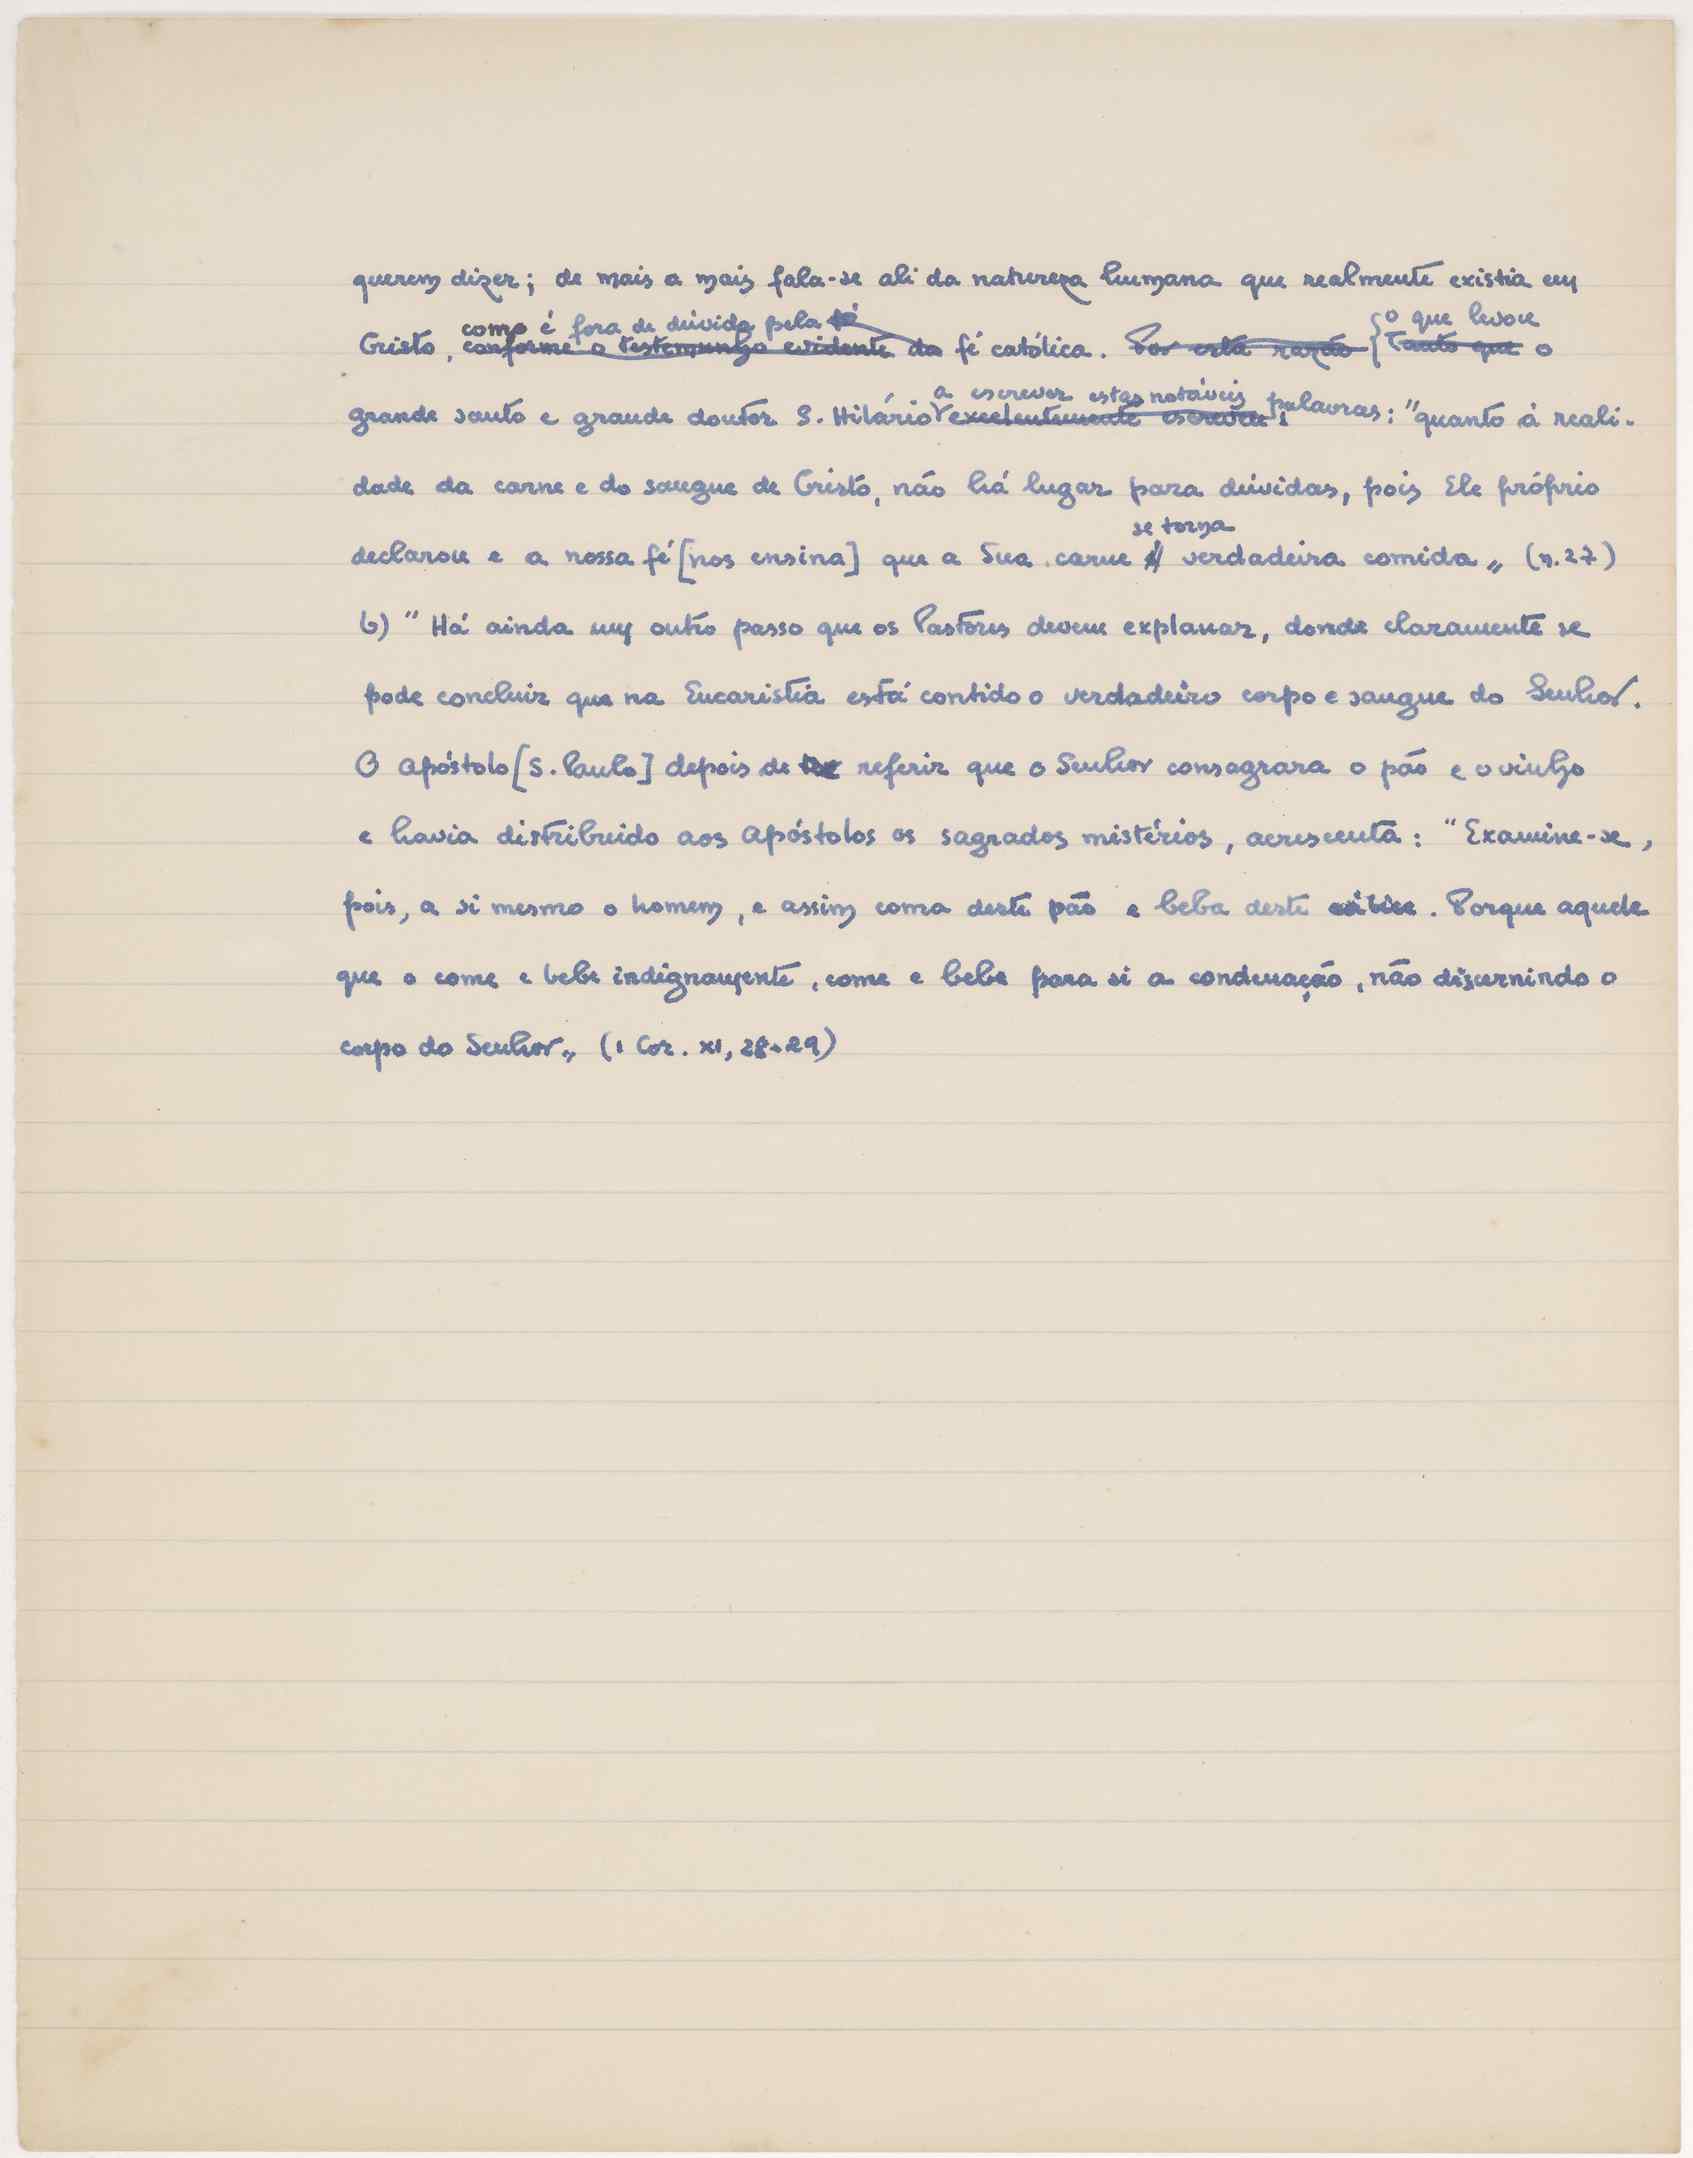 querem dizer; de mais a mais fala-se ali da natureza humana que realmente existia em
como é fora de dúvida pela fé
o que levou
Cristo, conforme o testemunho evidente da fé católica. Por esta razão tanto que o
a escrever estas notáveis palavras:
grande santo e grande doutor S. Hilário excelentemente escreveu: "quanto à reali-
dade da carne e do sangue de Cristo, não há lugar para dúvidas, pois Ele próprio
se torna
declarou e a nossa fé [nos ensina] que a Sua carne é verdadeira comida„ (n.27)
b) " Há ainda um outro passo que os Pastores devem explanar, donde claramente se
pode concluir que na Eucaristia está contido o verdadeiro corpo e sangue do Senhor.
O Apóstolo [S. Paulo] depois de referir que o Senhor consagrara o pão e o vinho
e havia distribuido aos Apóstolos os sagrados mistérios, acrescenta: "Examine-se,
pois, a si mesmo o homem, e assim coma deste pão e beba deste cálice. Porque aquele
que o come e bebe indignamente, come e bebe para si a condenação, não discernindo o
corpo do Senhor„ (1 Cor. XI, 28-29)